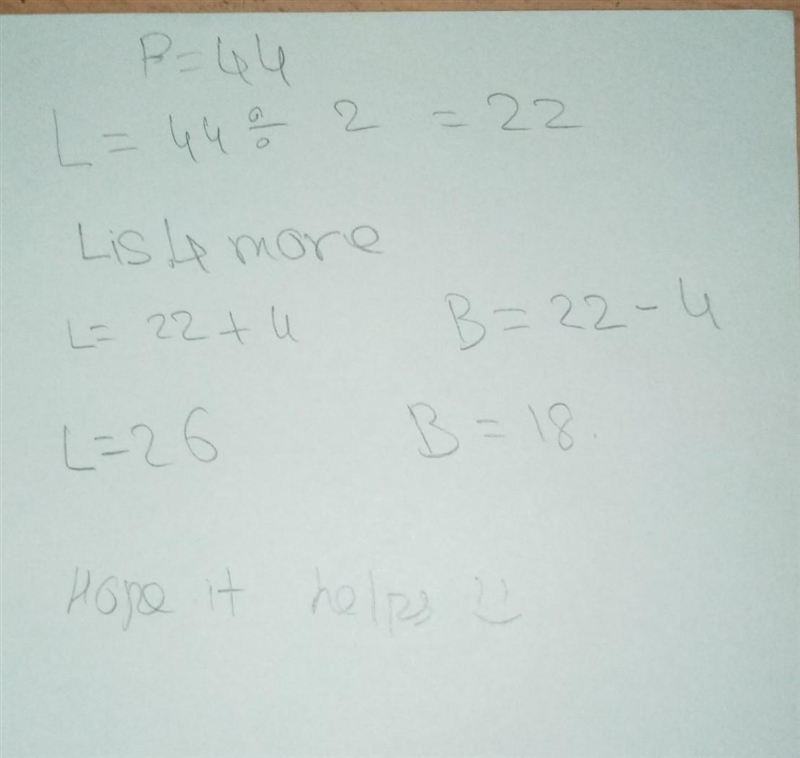 P=44
L = 44 ÷ 2 = 22
L is 4 more
L= 22 + 4 B = 22 - 4
L=26 B = 18.
Hope it helps :)